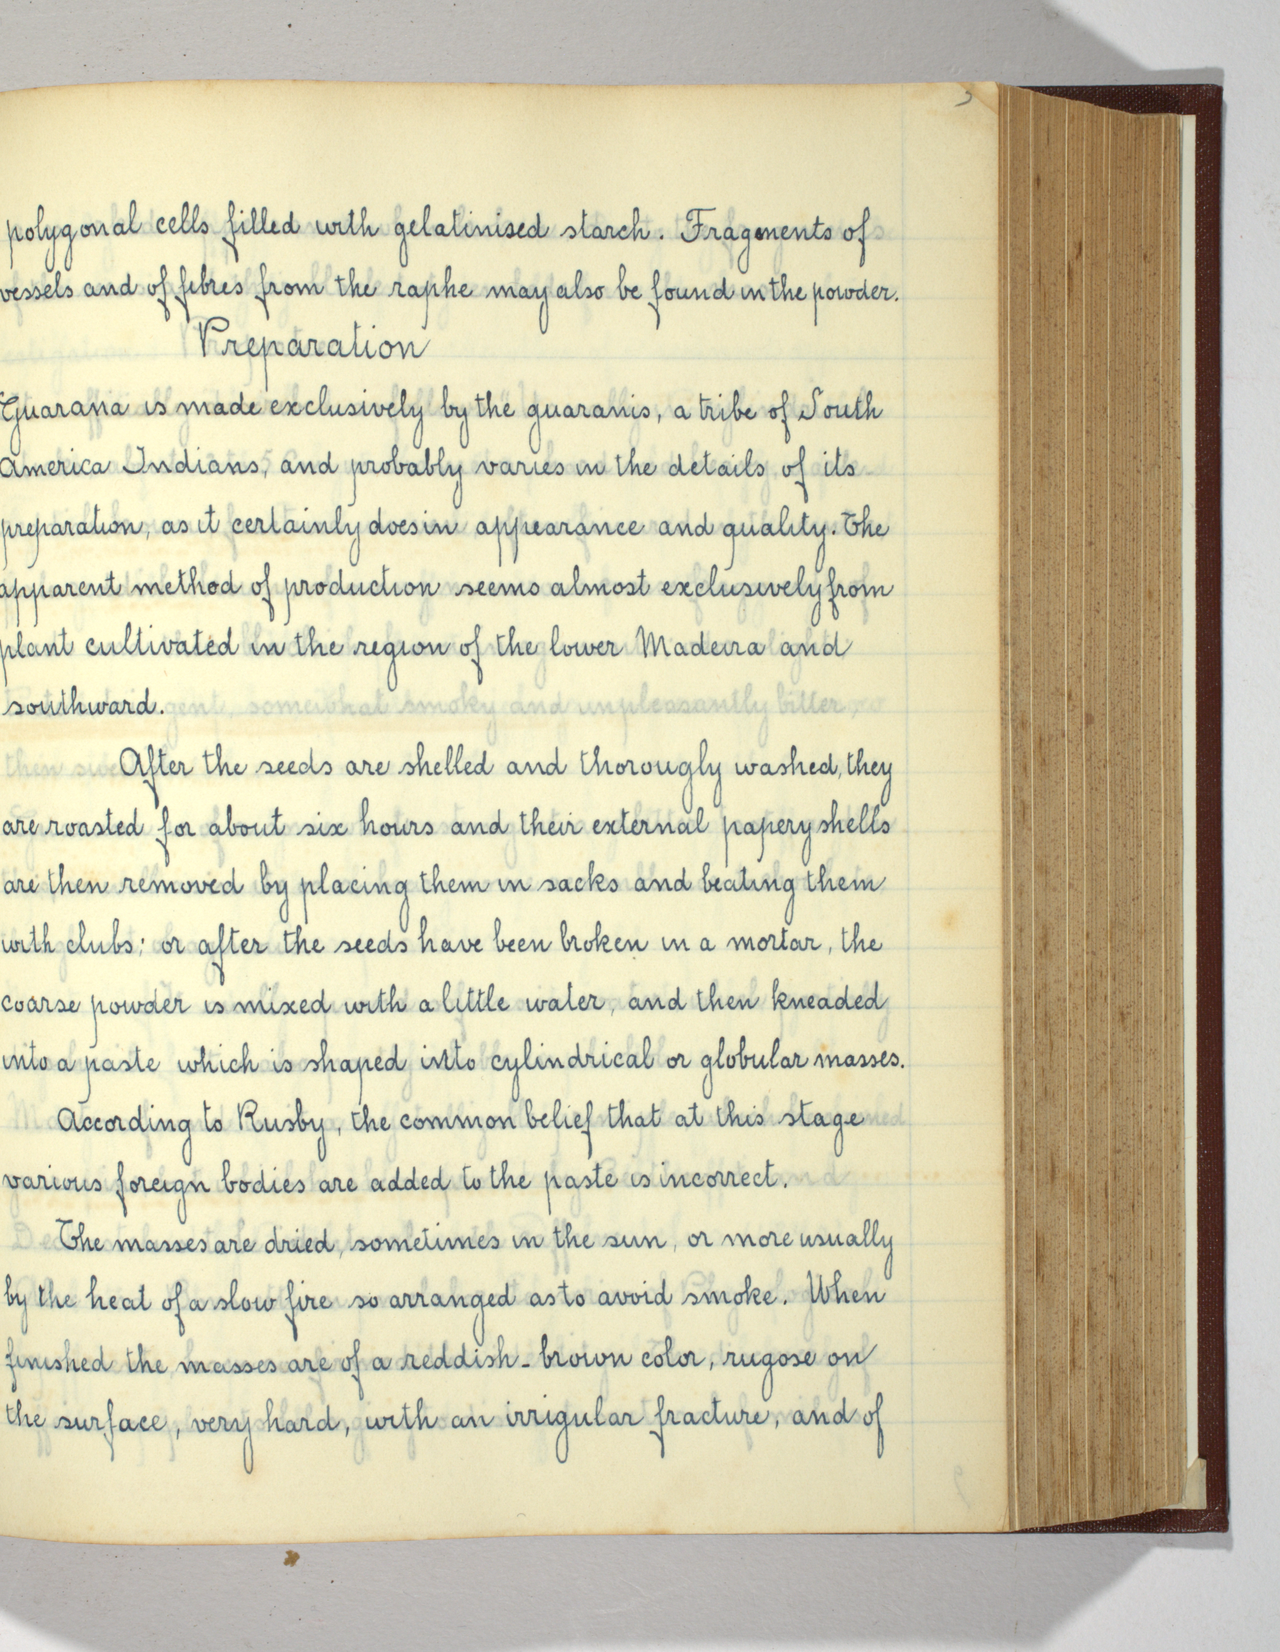 polygonal cells filled with gelatinised starch. Fragments of
vessels and of febres from the raphe may also be found in the powder.
Preparation
Guarana is made exclusively by the guaranis, a tribe of South
America Indians, and probably varies in the details of its
preparation, as it certainly does in appearance and quality. The
apparent method of production seems almost exclusively from
plant cultivated in the region of the lower Madeira and
southward.
After the seeds are shelled and thorougly washed, they
are roasted for about six hours and their external papery shells
are then removed by placing them in sacks and beating them
with clubs; or after the seeds have been broken in a mortar, the
coarse powder is mixed with a little water, and then kneaded
into a paste which is shaped into cylindrical or globular masses.
According to Rusby, the common belief that at this stage
various foreign bodies are added to the paste is incorrect.
The masses are dried, sometimes in the sun, or more usually
by the heat of a slow fire so arranged as to avoid smoke. When
finished the masses are of a reddish-brown color, rugose on
the surface, very hard, with an irrigular fracture, and of